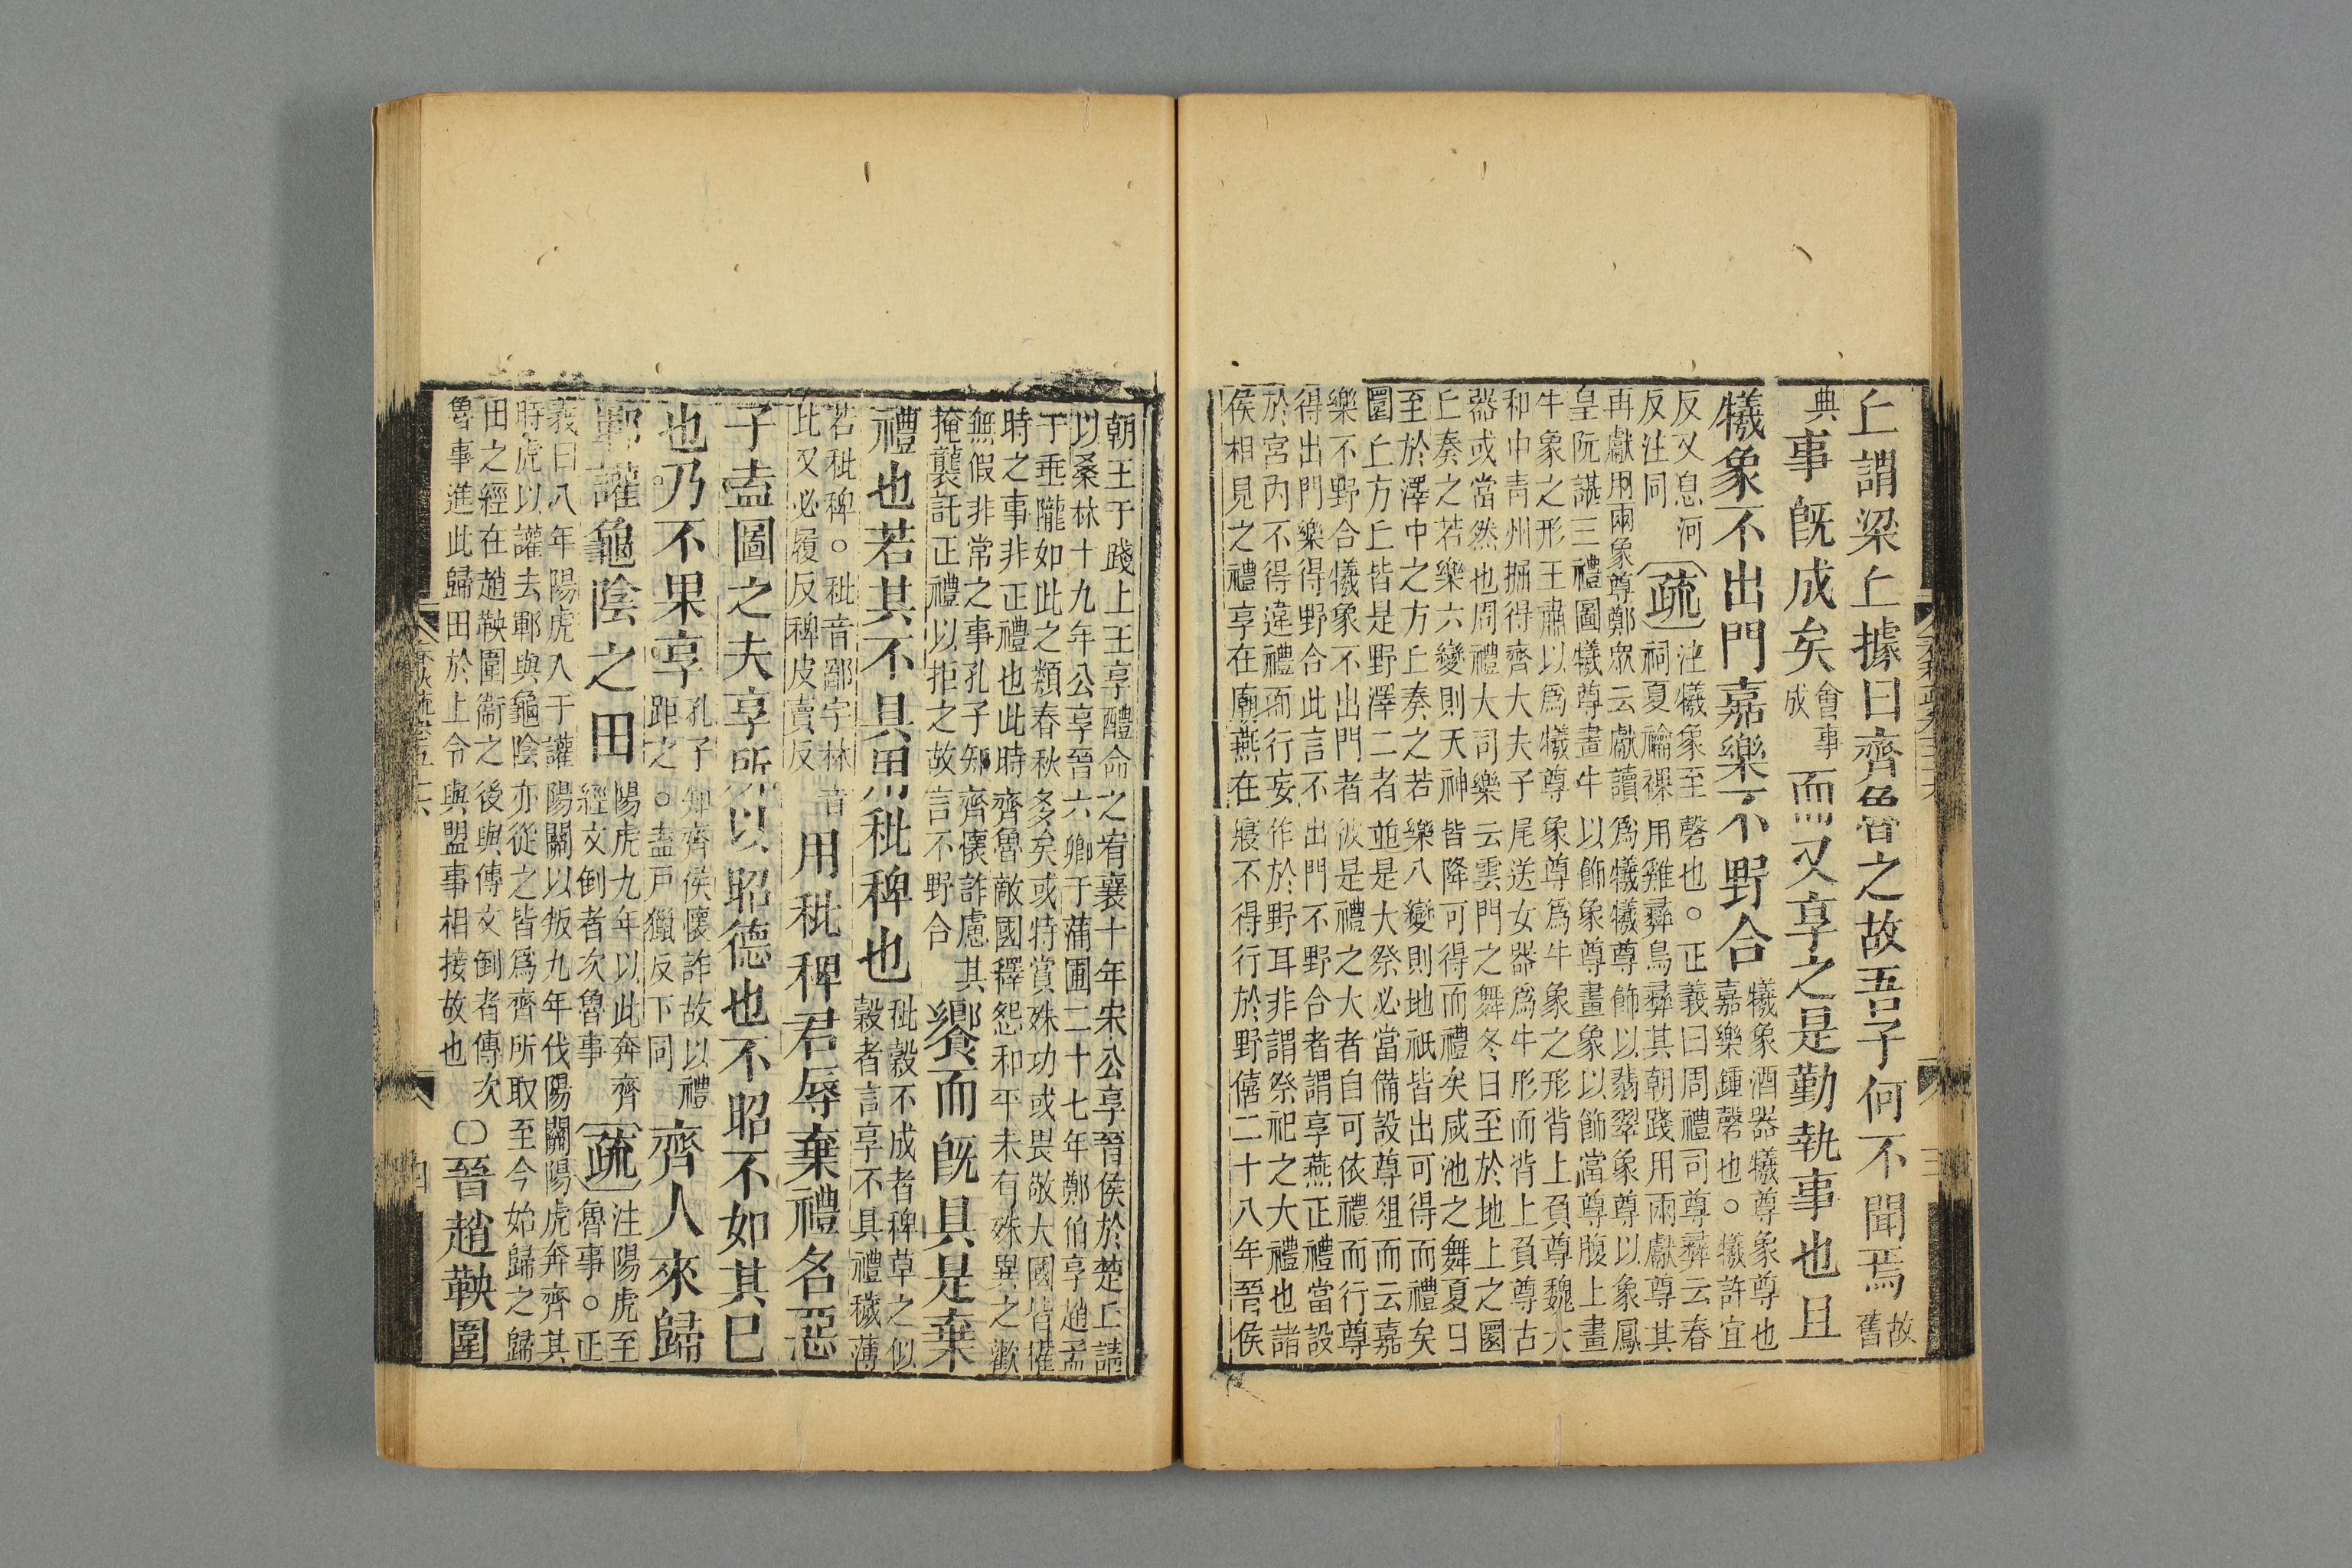 丘謂梁丘據曰齊魯之故吾子何不聞焉故舊
典事旣成矣會事成而又享之是勤執事也且
犧象不出門嘉樂不野合犧象酒器犧尊象尊也
嘉樂鍾磬也○犧許宜
反又息河
反注同
疏注犧象至磬也○正義曰周禮司尊彝云春
祠夏禴祼用雞彝鳥彝其朝踐用兩獻尊其
再獻用兩象尊鄭眾云獻讀爲犧犧尊飾以翡翠象尊以象鳳
皇阮諶三禮圖犧尊畫牛以飾象尊畫象以飾當尊腹上畫
牛象之形王肅以爲犧尊象尊爲牛象之形背上負尊魏大
和中青州掘得齊大夫子尾送女器爲牛形而背上負尊古
器或當然也周禮大司樂云雲門之舞冬日至於地上之圜
丘奏之若樂六變則天神皆降可得而禮矣咸池之舞夏日
至於澤中之方丘奏之若樂八變則地祇皆出可得而禮矣
圜丘方丘皆是野澤二者並是大祭必當備設尊俎而云嘉
樂不野合犧象不出門者彼是禮之大者自可依禮而行尊
得出門樂得野合此言不出門不野合者謂享燕正禮當設
於宮內不得違禮而行妄作於野耳非謂祭祀之大禮也諸
侯相見之禮享在廟燕在寢不得行於野僖二十八年晉侯
朝王于踐土王享醴命之宥襄十年宋公享晉侯於楚丘請
以桑林十九年公享晉六卿于蒲圃二十七年鄭伯享趙孟
于垂隴如此之類春秋多矣或特賞殊功或畏敬大國皆權
時之事非正禮也此時齊魯敵國釋怨和平未有殊異之歡
無假非常之事孔子知齊懷詐慮其
掩襲託正禮以拒之故言不野合
饗而旣具是棄
禮也若其不具用秕稗也秕穀不成者稗草之似
穀者言享不具禮穢薄
若秕稗○秕音鄙字林音
此又必履反稗皮賣反
用秕稗君辱棄禮名惡
子盍圖之夫享所以昭德也不昭不如其已
也乃不果享孔子知齊侯懷詐故以禮
距之○盍戸獵反下同
齊人來歸
鄆讙龜陰之田陽虎九年以此奔齊
經文倒者次魯事
疏注陽虎至
魯事○正
義曰八年陽虎入于讙陽關以叛九年伐陽關陽虎奔齊其
時虎以讙去鄆與龜陰亦從之皆爲齊所取至今始歸之歸
田之經在趙鞅圍衞之後與傳文倒者傳次
魯事進此歸田於上令與盟事相接故也
○晉趙鞅圍